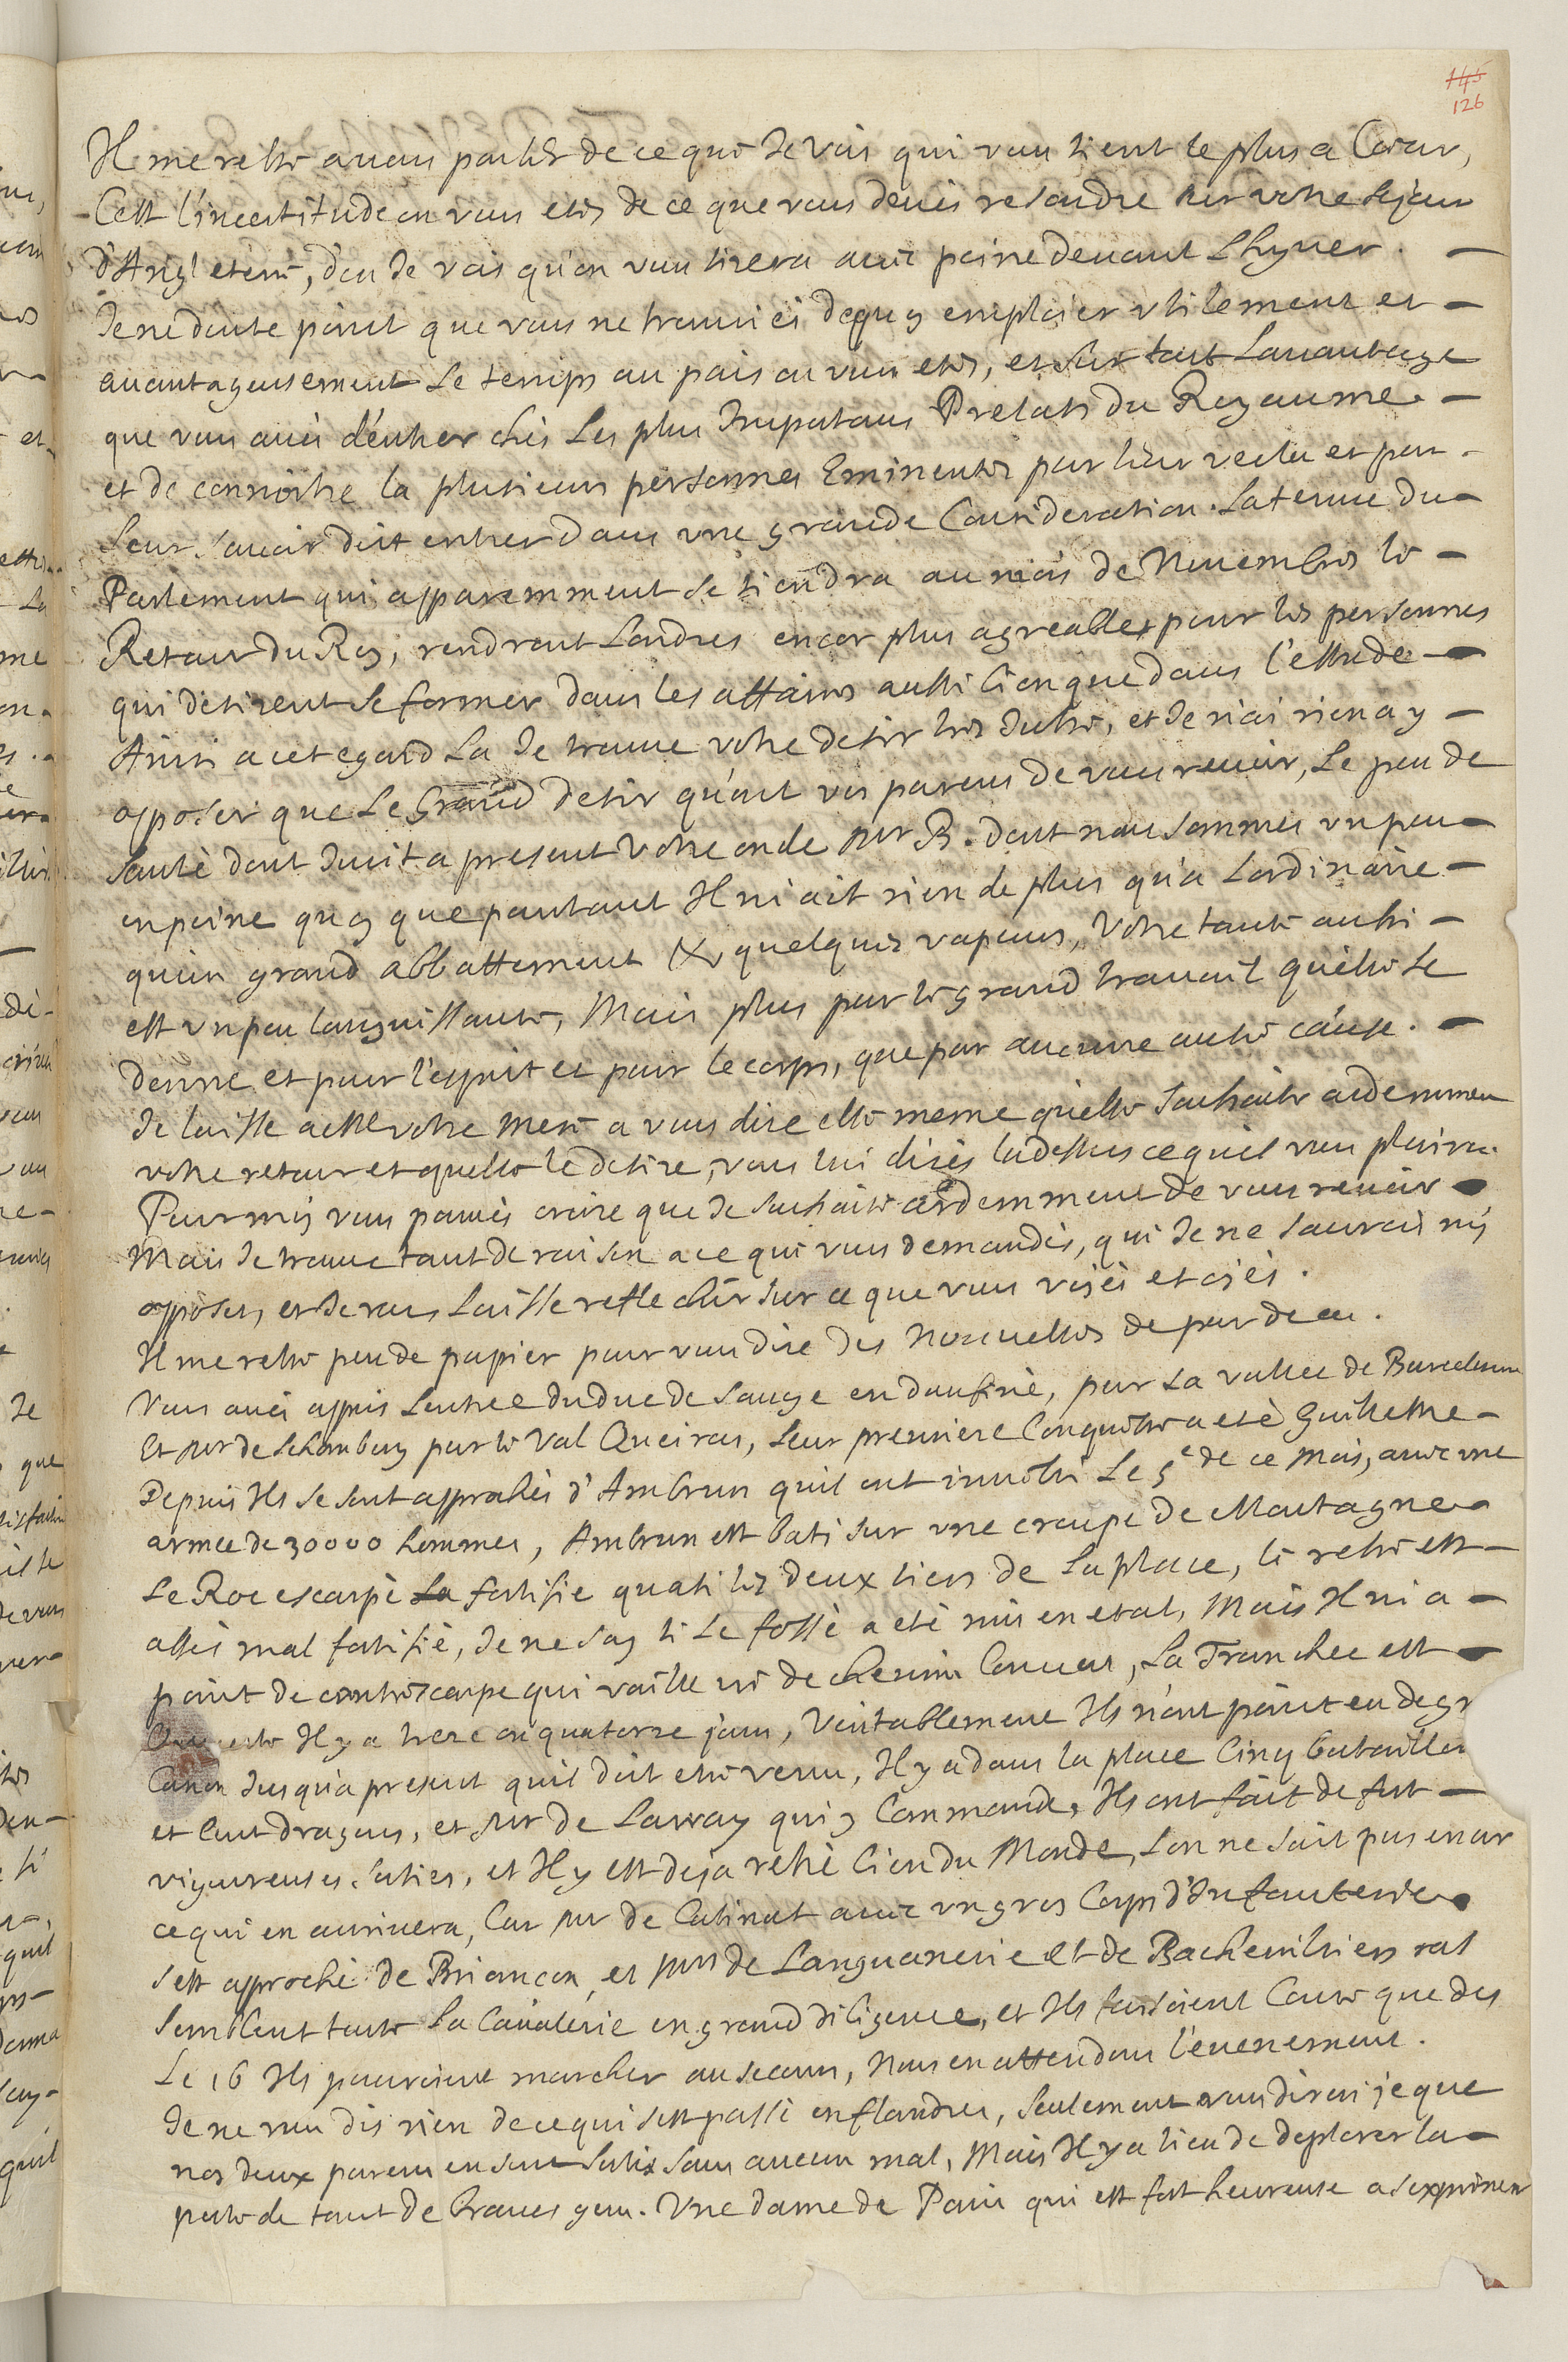 145
126
Il me reste a vous parler de ce que Je vois qui vous tient le plus a Cœur,
Cest l'incertitude ou vous etes de ce que vous devés resoudre sur votre sejour
d'Angleterre, dou Je vois qu'on vous tirera avec peine devant Lhyver. —
Je ne doute point que vous ne trouviés dequoy emploier utilement et —
avantageusement Le temps au pais ou vous etes, et sur tout Lavantage
que vous avés d'entrer chés Les plus Importans Prelats du Royaume —
et de connoitre la plusieurs personnes Eminentes par leur vertu et par -
leur savoir doit entrer dans une grande Consideration. La tenue du —
Parlement qui apparemment se tiendra au mois de Novembre le —
Retour du Roy, rendront Londres encor plus agreable pour les personnes
qui desirent se former dans les affaires aussi bien que dans l'estude —
Ainsi a cet egard La Je trouve votre desir tres Juste, et Je n'ai rien a y —
opposer que Le Grand desir qu'ont vos parens de vous revoir, Le peu de
santé dont Jouit a present votre oncle Mr B. dont nous sommes un peu —
en peine quoy que pourtant Il n'ait rien de plus qu'a Lordinaire —
qu'un grand abbattement & quelques vapeurs, Votre tante aussi —
est un peu languissante, Mais plus par le grand travail quelle se
donne et pour l'esprit et pour le corps, que par aucune autre cause. —
Je laisse a votre Mere a vous dire elle meme quelle souhaite ardemmen
votre retour et quelle le desire, vous lui dirés la dessus ce quil vous plaira.
Pour moy vous pouvés croire que Je souhaite ardemment de vous revoir —
Mais Je trouve tant de raison a ce qui vous demandés, qui Je ne saurois m'y
opposer, et Je vous Laisse reflechir sur ce que vous voyés et oyés.
Il me reste peu de papier pour vous dire des Nouvelles de par deca.
Vous avés appris Lentree du duc de Savoye en daufiné, par La vallee de Barcelonne
Et Mr de Schomberg par le Val Queiras, Leur premiere Conqueste a eté Guillestre —
Depuis Ils se sont approchés d'Ambrun quil ont investi Le 5e de ce Mois, avec une
armee de 30000 hommes, Ambrun est bati sur une croupe de Montagne —
Le Roc escarpé La fortifie quasi les deux tiers de La place, le reste est —
assés mal fortifié, Je ne say si Le fossé a eté mis en etat, Mais Il ni a —
point de contrescarpe qui vaille ni de chemin Couvert, La Tranchee est —
Ouverte Il y a treze ou quatorze jours, Veritablement Ils n'ont point eu de gr
Canon Jusqu'a present quil doit etre venu, Il y a dans la place Cinq bataillon
et Cent dragons, et Mr de Larray qui y Commande, Ils ont fait de fort —
vigoureuses sorties, et Il y est deja resté bien du Monde, Lon ne sait pas encor
ce qui en arrivera, Car Mr de Catinat avec un gros Corps d'Infanterie
sest approché de Briancon, et Mrs de Languanerie et de Bachevilliers ras
semblent toute La Cavalerie en grand diligence, et Ils faisoient Conte que des
Le 16 Ils pouroient marcher au secours, Nous en attendons l'evenement.
Je ne vous dis rien de ce qui sest passé en flandres, seulement vous dirai je que
nos deux parens en sont sortis sans aucun mal, Mais Il y a lieu de deplorer la —
perte de tant de braves gens. Une dame de Paris qui est fort heureuse a sexprimer